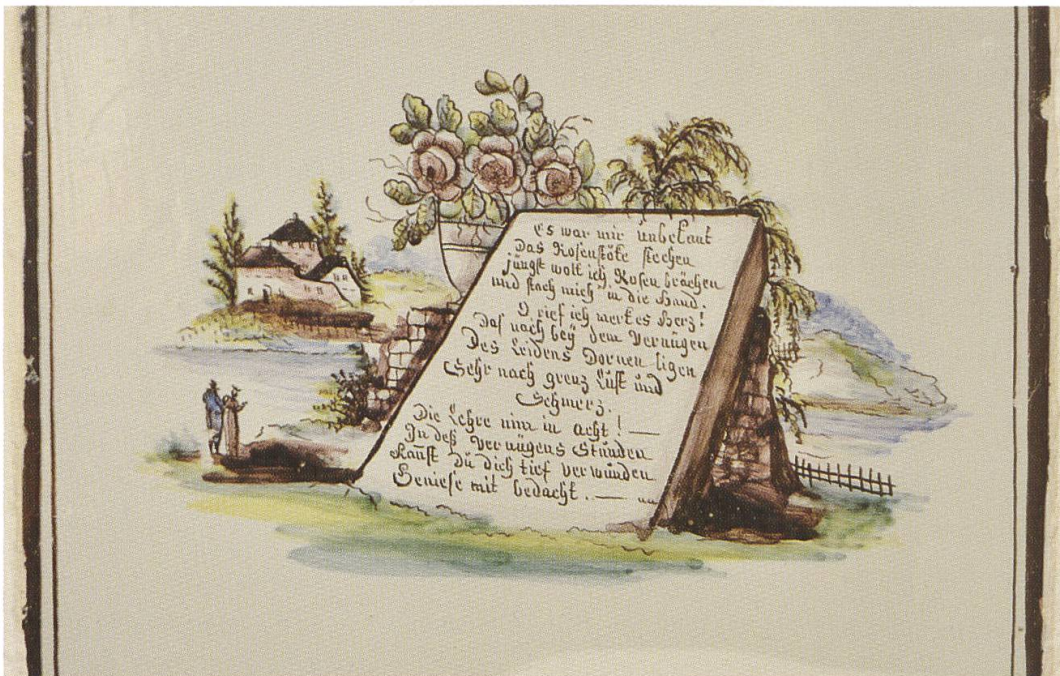 Es war mir unbekant
Das Rosenstöke stechen
jüngst wolt ich Rosen brächen
und stach mich in die Hand.
O rief ich merk es Herz!
Das nach bey dem Vernügen
Des Leidens Dornen ligen
Sehr nach grenz Lust und
Schmerz.
Die Lehre nim in acht! —
In deß Vernügens Stunden
Kanst Du dich tief verwunden
Geniese mit bedacht . . —